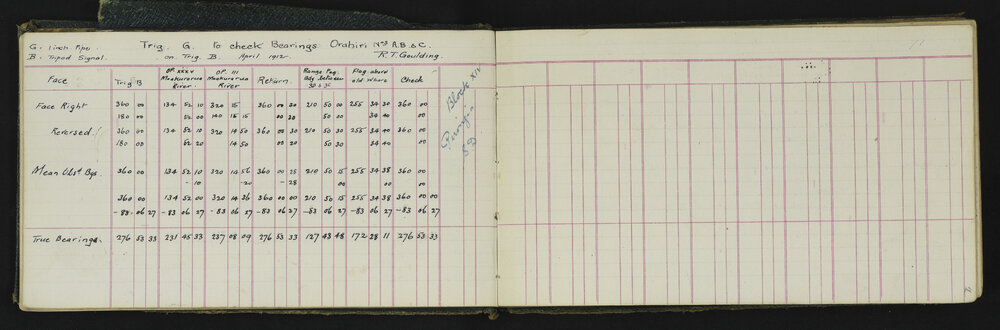 G. 1 inch Pipe. Trig. G. To check Bearings Orahiri Nos A.B. & C.
B. Tripod Signal. on Trig. B. April 1912. R.T. Goulding.
Face Trig B OP XXXV Mookureroa River. OP. III Mookureroa River Return. Range Peg. Bdy between 30 & 31 Flag above old Whare Check
Face Right 360 00 134 52 10 320 15 360 00 30 210 50 00 255 34 30 360 00
180 00 52 00 140 15 15 00 20 50 30 34 40 00
Reversed 360 00 134 52 10 320 14 50 360 00 30 210 50 30 255 34 40 360 00
180 00 52 20 14 50 00 20 50 30 34 40
Mean Obsd Bgs. 360 00 134 52 10 320 14 56 360 00 25 210 50 15 255 34 38 360 00
- 10 -20 - 25 00 00 00
360 00 134 52 00 320 14 36 360 00 00 210 50 15 255 34 38 360 00 00
- 83 06 27 - 83 06 27 - 83 06 27 - 83 06 27 - 83 06 27 - 83 06 27 - 83 06 27
True Bearings. 276 53 33 231 45 33 237 08 09 276 53 33 127 43 48 172 28 11 276 53 33
Block XIV
SD
71